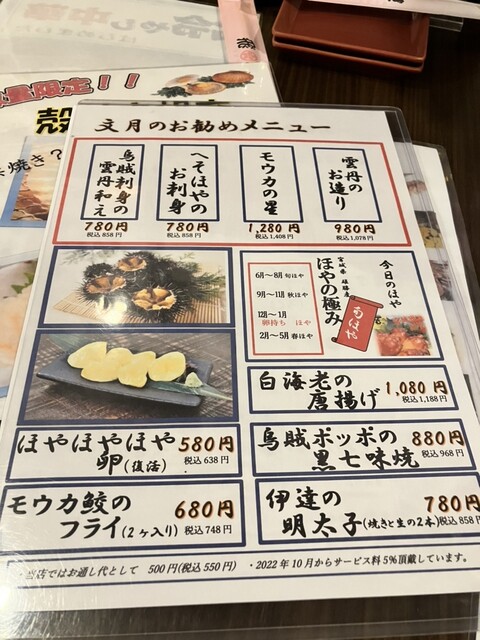 量限定！！
焼き？
文月のお勧めメニュー
雲丹のお造り
980円
税込1,078円
モウカの星
1,280円
税込1,408円
へそほやのお刺身
780円
税込858円
烏賊刺身の雲丹和え
780円
税込858円
今日のほや
宮城県 雄勝産
ほやの極み
旬ほや
6月～8月 旬ほや
9月～11月 秋ほや
12月～1月
卵持ち ほや
2月～5月 春ほや
白海老の
唐揚げ
1,080円
税込1,188円
ほやほやほや
卵(復活)
580円
税込638円
烏賊ポッポの
黒七味焼
880円
税込968円
モウカ鮫の
フライ(2ヶ入り)
680円
税込748円
伊達の
明太子(焼きと生の2本)
780円
税込858円
・当店ではお通し代として 500円(税込550円) ・2022年10月からサービス料5%頂戴しています。